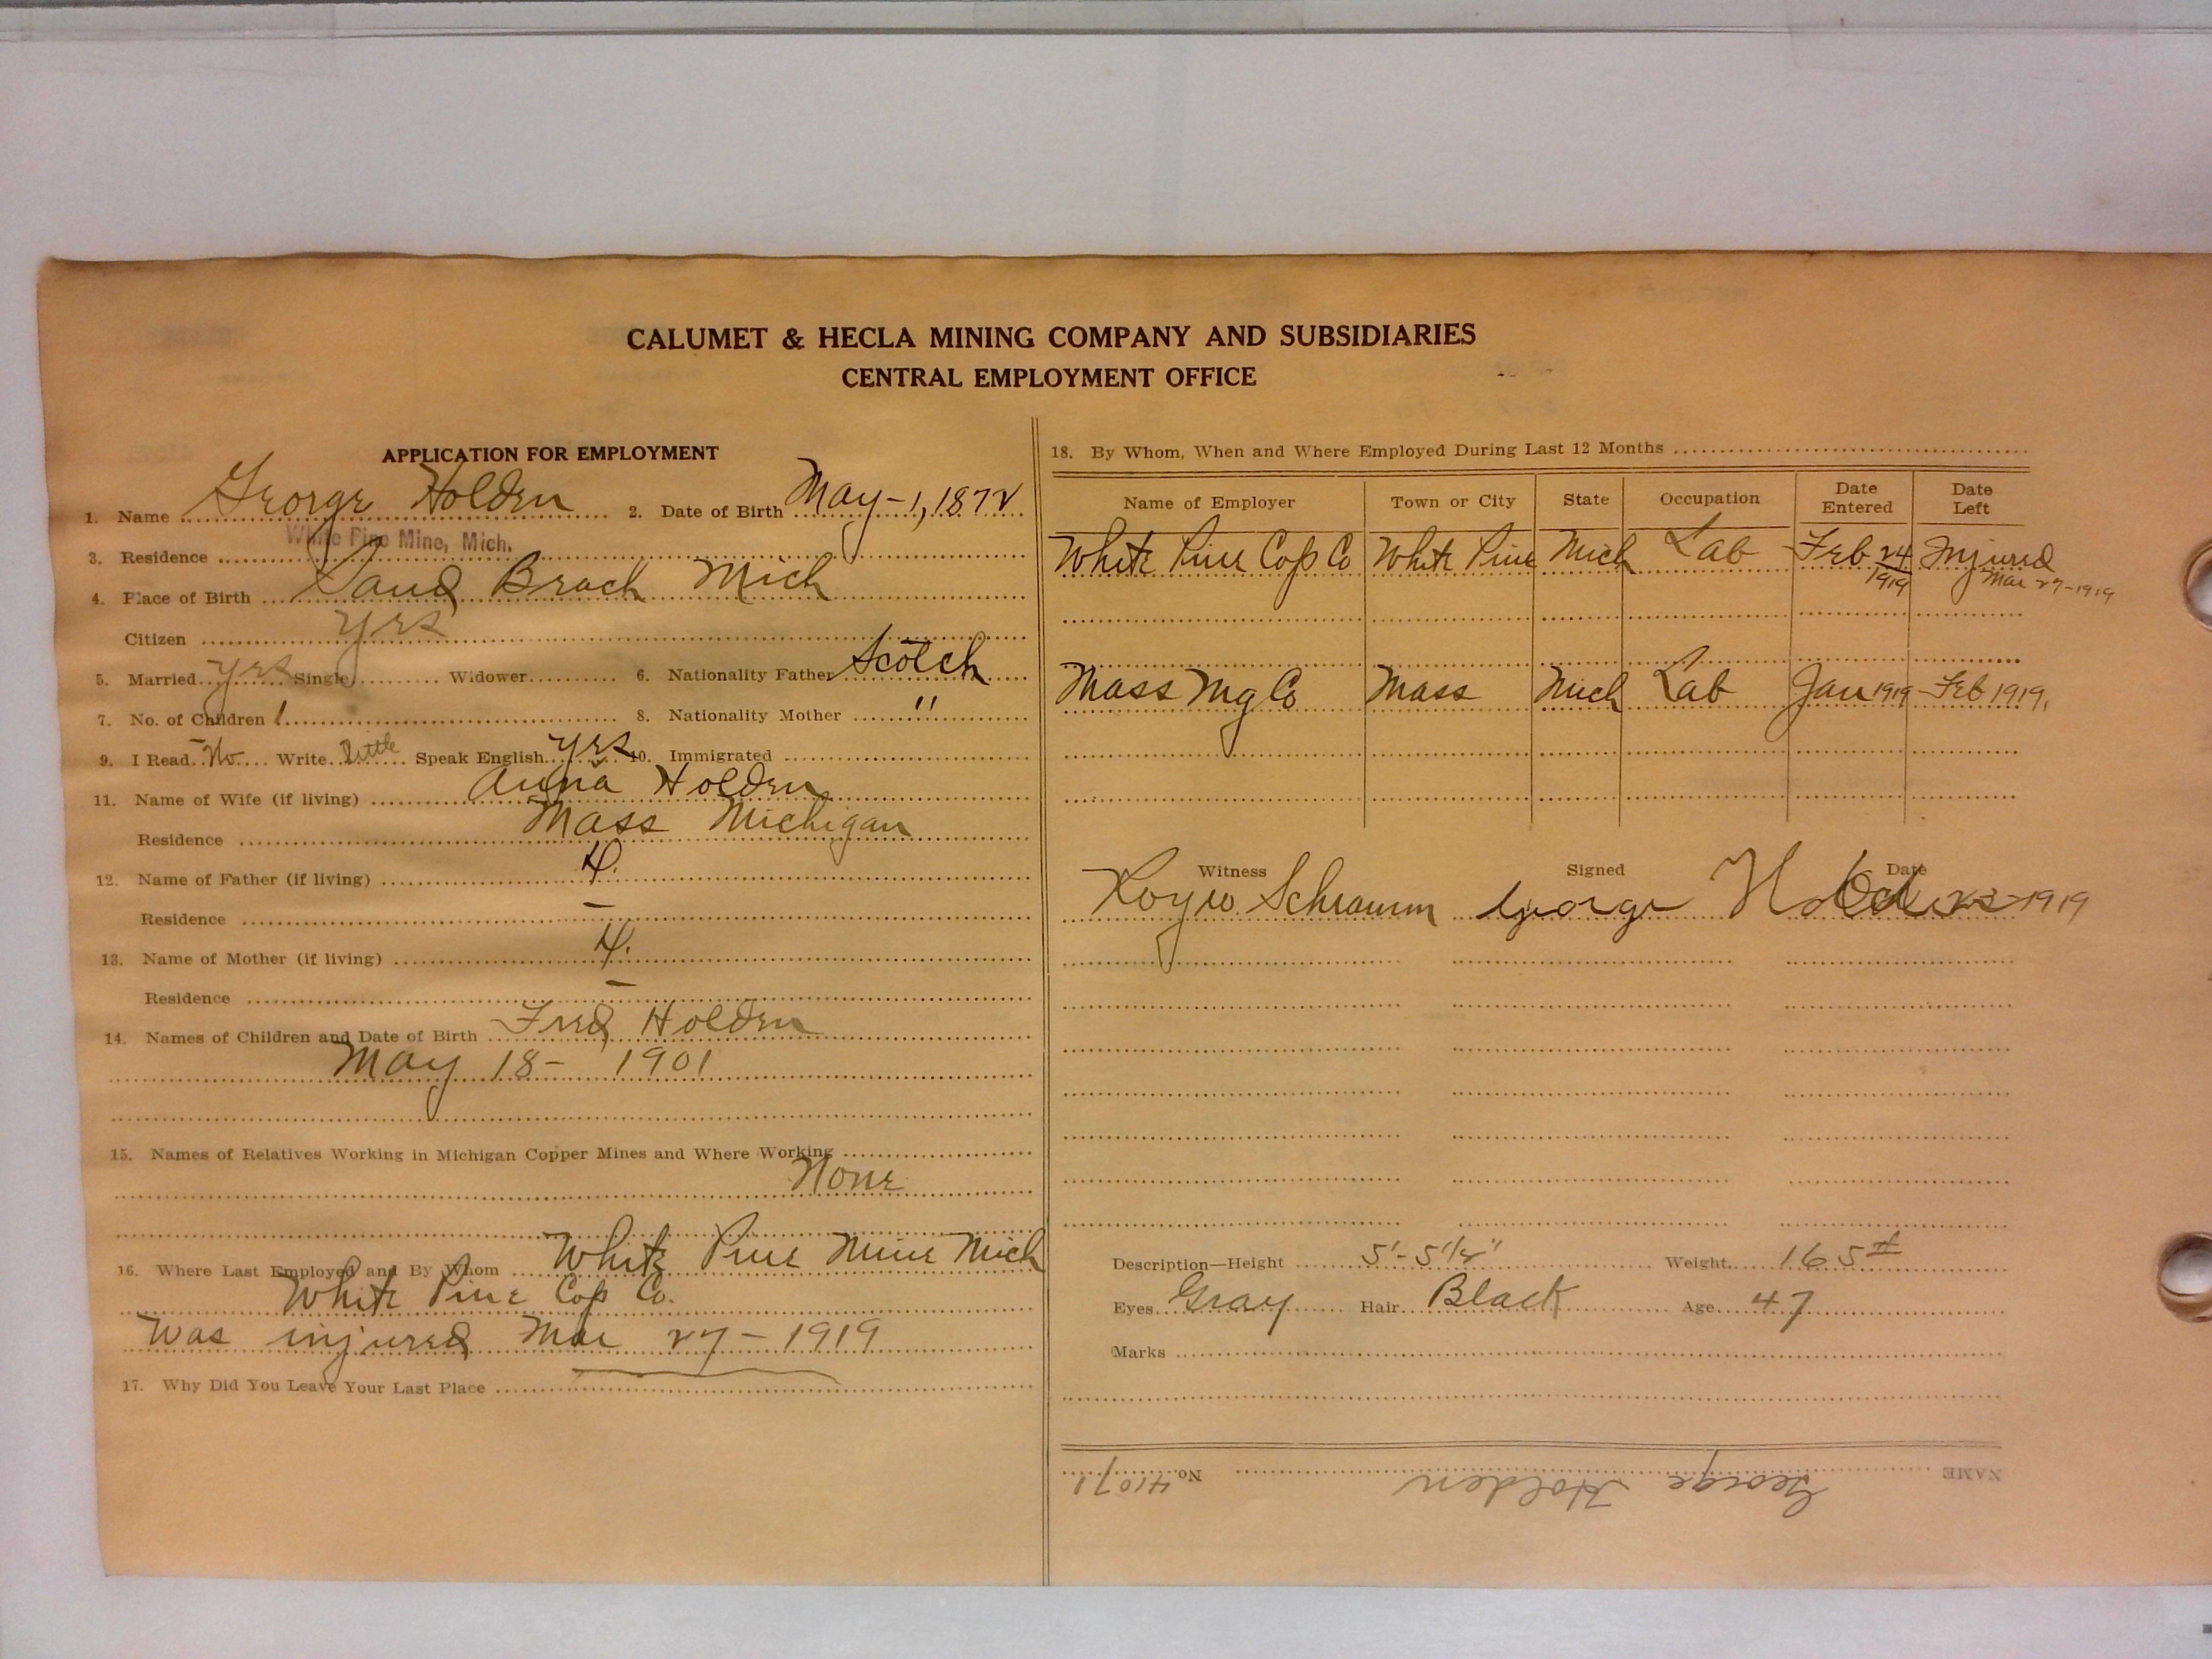 CALUMET & HECLA MINING COMPANY AND SUBSIDIARIES
CENTRAL EMPLOYMENT OFFICE
APPLICATION FOR EMPLOYMENT
1. Name George Holden 2. Date of Birth May - 1, 1872
3. Residence White Pine Mine, Mich.
4. Place of Birth Sand Beach Mich
Citizen yes
5. Married yes Single Widower 6. Nationality Father Scotch
7. No. of Children 1 8. Nationality Mother "
9. I Read No Write Little Speak English yes 10. Immigrated
11. Name of Wife (if living) Anna Holden
Residence Mass Michigan
12. Name of Father (if living)
Residence –
13. Name of Mother (if living)
Residence –
14. Names of Children and Date of Birth Fred Holden
May 18 - 1901
15. Names of Relatives Working in Michigan Copper Mines and Where Working
None
16. Where Last Employed and By Whom White Pine Mine Mich
White Pine Cop Co.
Was injured Mar 27 - 1919
17. Why Did You Leave Your Last Place
18. By Whom, When and Where Employed During Last 12 Months
Name of Employer Town or City State Occupation Date Entered Date Left
White Pine Cop Co White Pine Mich Lab Feb 24 1919 Injured Mar 27-1919
Mass Mg Co Mass Mich Lab Jan 1919 Feb 1919.
Witness Signed Date
Roy W. Schramm George Holden 1919
Description—Height 5'-5 1/2" Weight 165 #
Eyes Gray Hair Black Age 47
Marks
NAME George Holden No. 41071